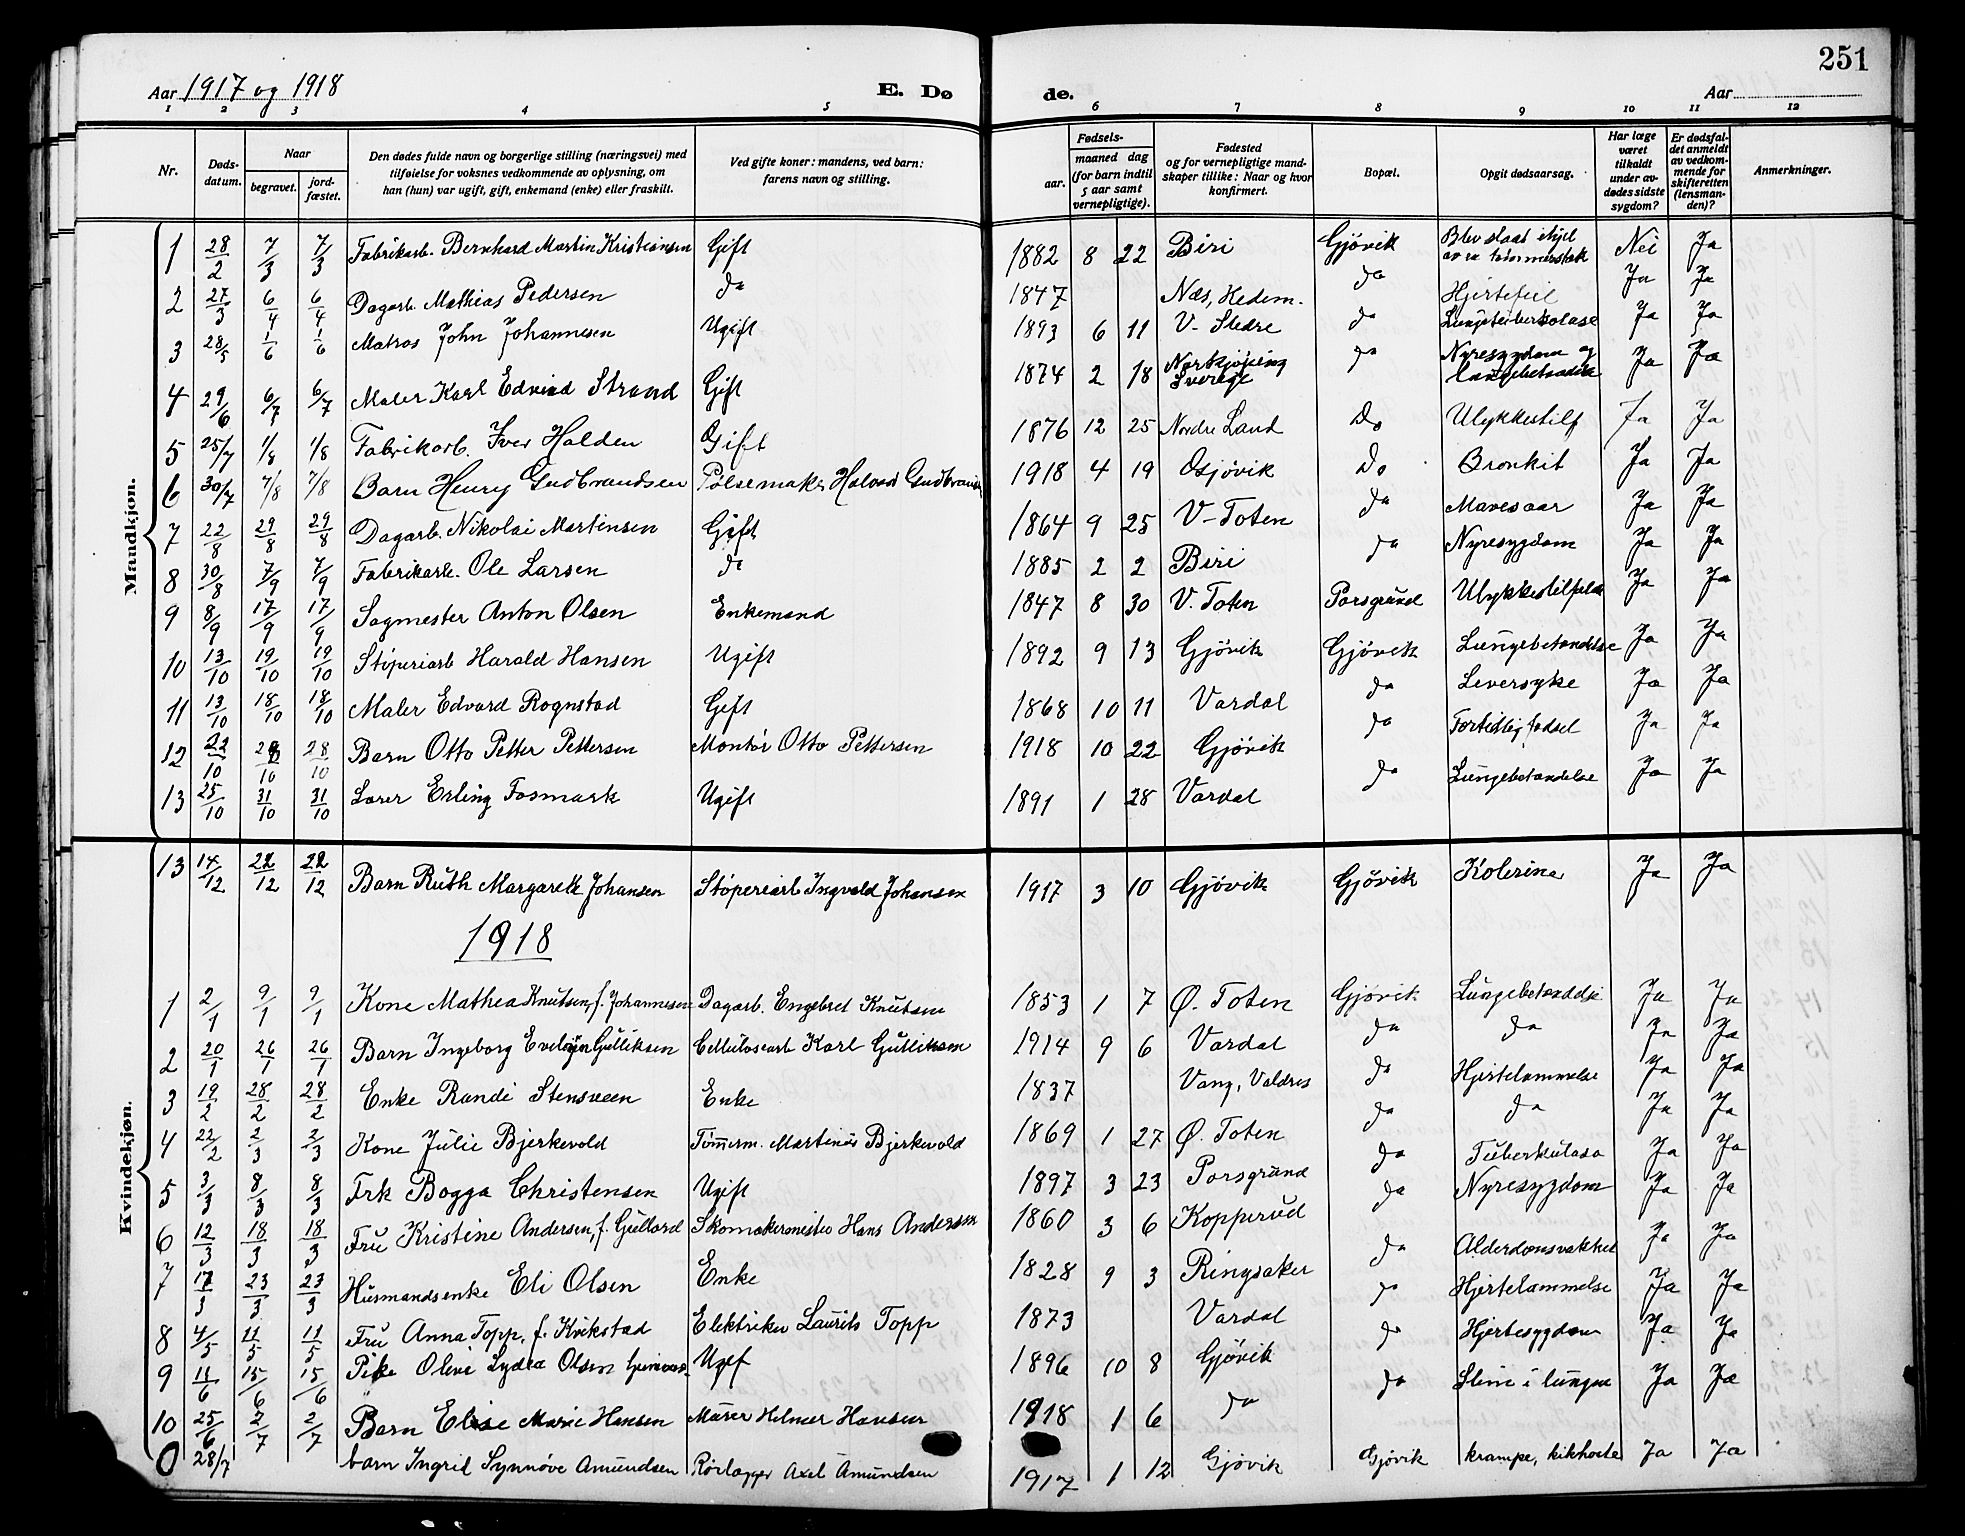 251
Aar 1917 og 1918 E. Dø de. Aar
1 2 3 4 5 6 7 8 9 10 11 12
Nr. Døds-datum. Naar begravet. jord-fæstet. Den dødes fulde navn og borgerlige stilling (næringsvei) med tilføielse for voksnes vedkommende av oplysning, om han (hun) var ugift, gift, enkemand (enke) eller fraskilt. Ved gifte koner: mandens, ved barn: farens navn og stilling. Fødsels- aar. maaned dag (for barn indtil 5 aar samt vernepligtige). Fødested og for vernepligtige mand-skaper tillike: Naar og hvor konfirmert. Bopæl. Opgit dødsaarsag. Har læge været tilkaldt under av-dødes sidste sygdom? Er dødsfal-det anmeldt av vedkom-mende for skifteretten (lensman-den)? Anmerkninger.
Mandkjøn.
1 28/2 7/3 7/3 Fabrikarb. Bernhard Martin Kristiansen Gift 1882 8 22 Biri Gjøvik Blev slaat ihjel av en tømmerstok Nei Ja
2 27/3 6/4 6/4 Dagarb. Mathias Pedersen do 1847 Næs, Hedem. do Hjertefeil Ja Ja
3 28/5 1/6 1/6 Matros John Johannesen Ugift 1893 6 11 V. Slidre do Lungetuberkolose Ja Ja
4 29/6 6/7 6/7 Maler Karl Edvind Strand Gift 1874 2 18 Norkjöping Sverige do Nyresygdom og Ja Ja
5 25/7 1/8 1/8 Fabrikarb. Iver Halden Gift 1876 12 25 Nordre Land Do Ulykkestilf Ja Ja
6 30/7 7/8 7/8 Barn Henry Gudbrandsen Pølsemaker Halvard 1918 4 19 Gjøvik Do Bronkit Ja Ja
7 22/8 29/8 29/8 Dagarb. Nikolai Martinsen Gift 1864 9 25 V-Toten do Mavesaar Ja Ja
8 30/8 7/9 7/9 Fabrikarb. Ole Larsen do 1885 2 2 Biri do Nyresygdom Ja Ja
9 8/9 17/9 17/9 Sagmester Anton Olsen Enkemand 1847 8 30 V. Toten Porsgrund Ulykkestilfælde Ja Ja
10 13/10 19/10 19/10 Støperiarb Harald Hansen Ugift 1892 9 13 Gjøvik Gjøvik Lungebetændelse Ja Ja
11 13/10 18/10 18/10 Maler Edvard Rognstad Gift 1868 10 11 Vardal do Leversyke Ja Ja
12 22/10 28/10 28/10 Barn Otto Petter Pettersen Montør Otto Pettersen 1918 10 22 Gjøvik do Fortidlig fødsel Ja Ja
13 25/10 31/10 31/10 Lærer Erling Fosmark Ugift 1891 1 28 Vardal do Lungebetændelse Ja Ja
Kvindekjøn.
13 14/12 22/12 22/12 Barn Ruth Margarethe Johansen Støperiarb Ingvald Johansen 1917 3 10 Gjøvik Gjøvik Kolerine Ja Ja
1918
1 2/1 9/1 9/1 Kone Mathea Knutsen, f. Johannesen Dagarb. Engebret Knutsen 1853 1 7 Ø. Toten Gjøvik Lungebetændelse Ja Ja
2 20/1 26/1 26/1 Barn Ingeborg Evelyn Gulliksen Cellulosearb Karl Gulliksen 1914 9 6 Vardal do do Ja Ja
3 19/2 28/2 28/2 Enke Randi Stensveen Enke 1837 Vang, Valdres do Hjertelammelse Ja Ja
4 22/2 2/3 2/3 Kone Julie Bjerkevold Tømmerm. Martinius Bjerkevold 1869 1 27 Ø. Toten do do Ja Ja
5 3/3 8/3 8/3 Frk Bogga Christensen Ugift 1897 3 23 Porsgrund do Tuberkulose Ja Ja
6 12/3 18/3 18/3 Fru Kristine Andersen, f. Gullord Skomakermester Hans Andersen 1860 3 6 Kopperud do Nyresygdom Ja Ja
7 17/3 23/3 23/3 Husmandsenke Eli Olsen Enke 1828 9 3 Ringsaker do Alderdomsvakhet Ja Ja
8 4/5 11/5 11/5 Fru Anna Topp, f. Kvikstad Elektriker Laurits Topp 1873 Vardal do Hjertelammelse Ja Ja
9 11/6 15/6 15/6 Pike Olive Lydia Olsen Ugif 1896 10 8 Gjøvik do Hjertesygdom Ja Ja
10 25/6 2/7 2/7 Barn Elise Marie Hansen Murer Helmer Hansen 1918 1 6 do do Slim i lungen Ja Ja
0 28/7 barn Ingrid Synnøve Amundsen Rørlægger Axel Amundsen 1917 1 12 Gjøvik Gjøvik krampe, kikhoste Ja Ja